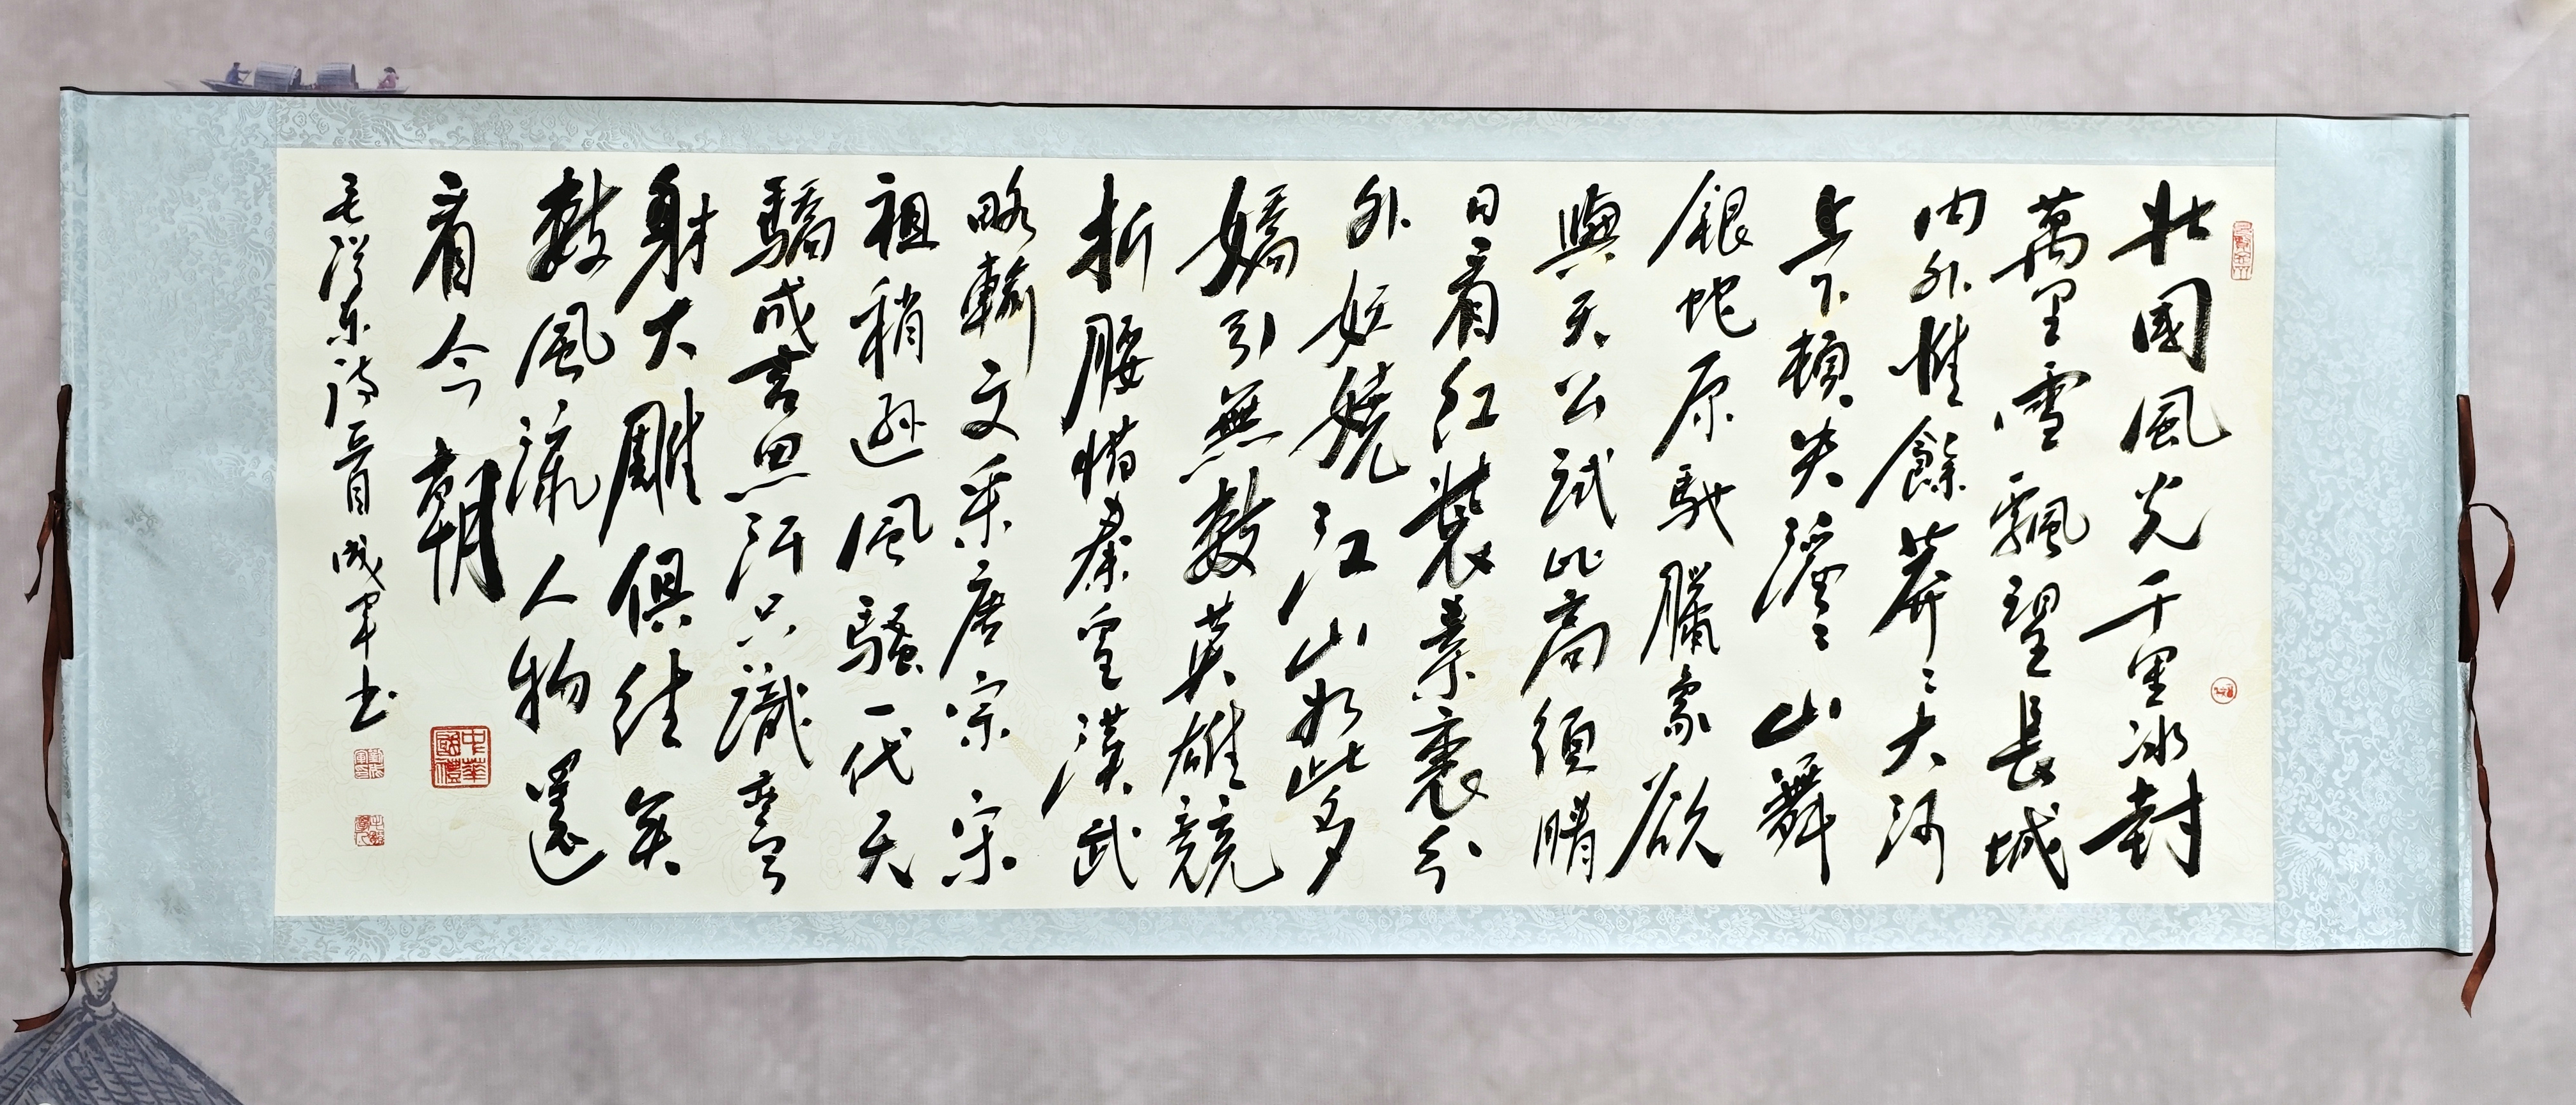 北國風光千里冰封
萬里雪飄望長城
内外惟餘莽〻大河
上下頓失滔〻山舞
銀蛇原馳臘象欲
與天公試比高須晴
日看紅裝素裹分
外妖嬈江山如此多
嬌引無數英雄競
折腰惜秦皇漢武
略輸文采唐宗宋
祖稍遜風騷一代天
驕成吉思汗只識彎弓
射大雕俱往矣
數風流人物還
看今朝
毛澤东詩成軍书
中華國禮